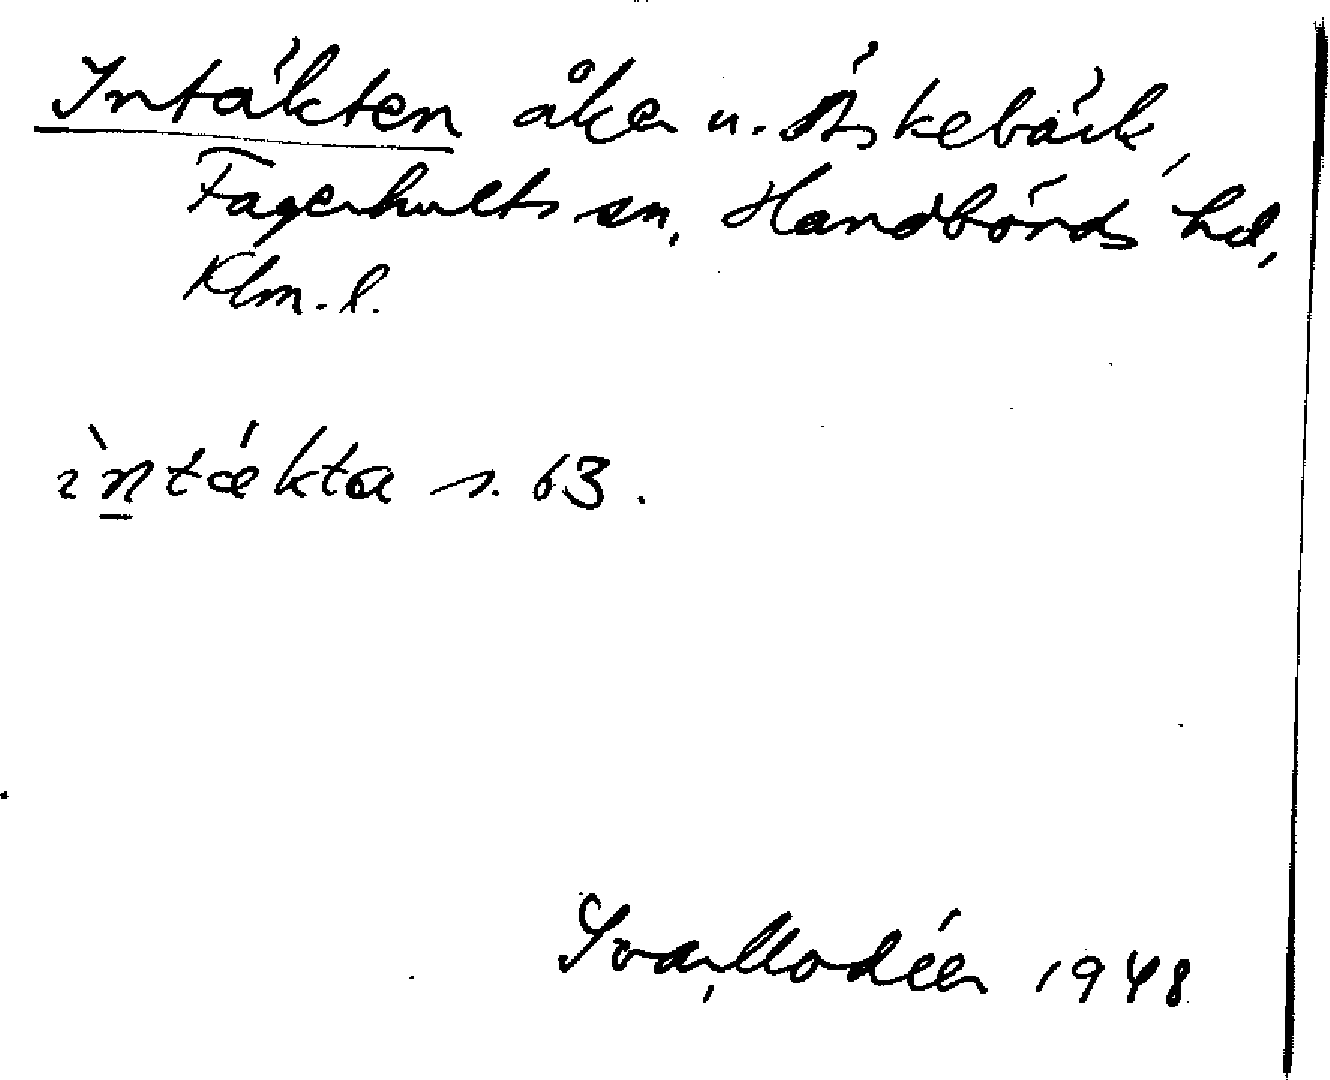 Intäkten åker u. Äskebäck,
Fagerhults sn, Handbörds hd,
Klm. l.
ìntǽkta s. 63.
Ivar Modéer 1948